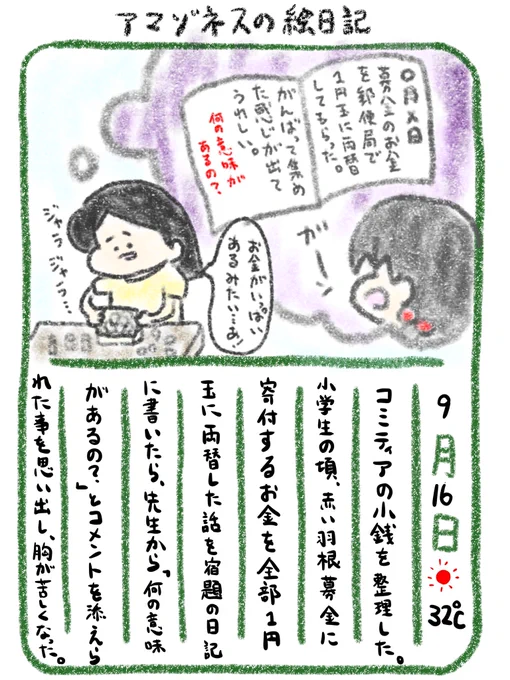 アマゾネスの絵日記
〇月×日
募金のお金
を郵便局で
1円玉に両替
してもらった。
がんばって集め
た感じが出て
うれしい。
何の意味が
あるの？
ジャラジャラ…
お金がいっぱい
あるみたいだあ！
がーん
9月16日
32℃
コミティアの小銭を整理した。
小学生の頃、赤い羽根募金に
寄付するお金を全部1円
玉に両替した話を宿題の日記
に書いたら、先生から「何の意味
があるの？」とコメントを添えら
れた事を思い出し、胸が苦しくなった。